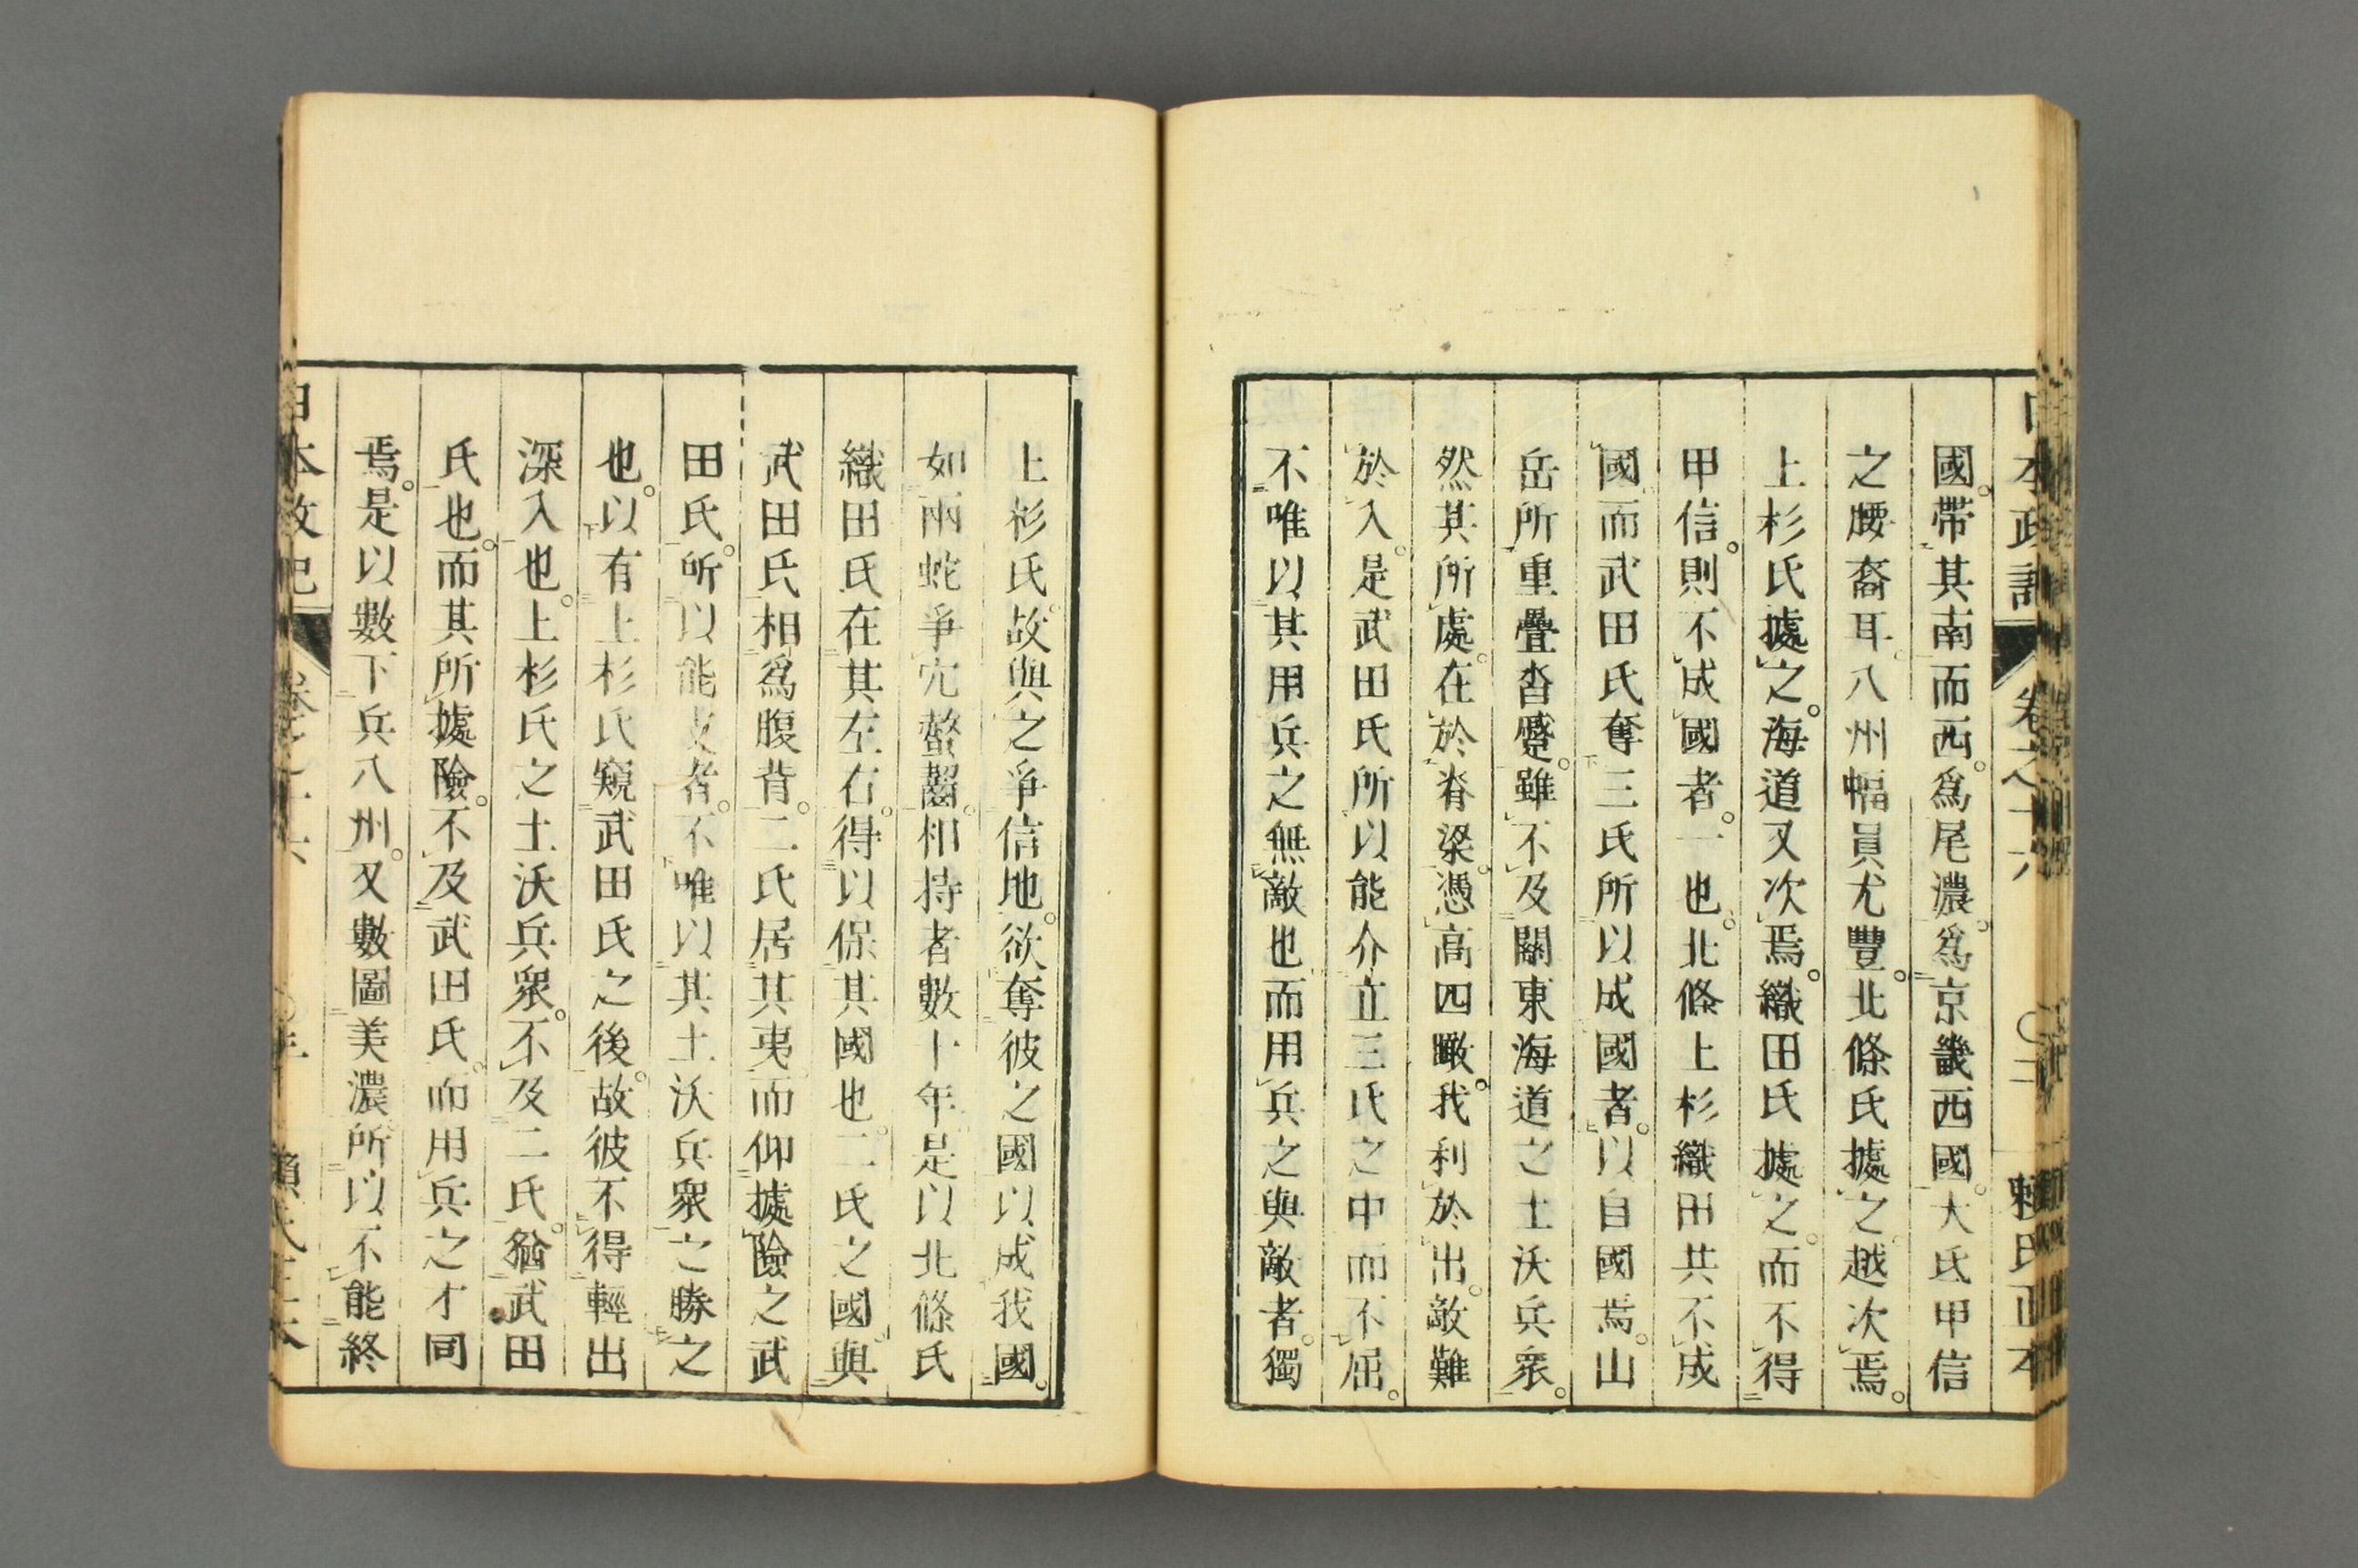 國。帶其南而西。爲尾濃。爲京畿西國。大氐甲信
之腰裔耳。八州幅員尤豐。北條氏據之。越次焉。
上杉氏據之。海道又次焉。織田氏據之。而不得
甲信。則不成國者。一也。北條上杉織田共不成
國。而武田氏奪三氏所以成國者。以自國焉。山
岳所重疊沓蹙。雖不及關東海道之土沃兵衆。
然其所處。在於脊梁。憑高四瞰。我利於出。敵難
於入。是武田氏所以能介立三氏之中而不屈。
不唯以其用兵之無敵也。而用兵之與敵者。獨
上杉氏。故與之爭信地。欲奪彼之國以成我國。
如兩蛇爭穴螫齧。相持者數十年。是以北條氏
織田氏在其左右。得以保其國也。二氏之國與
武田氏相爲腹背。二氏居其夷。而仰據險之武
田氏。所以能支者。不唯以其土沃兵衆之勝之
也。以有上杉氏窺武田氏之後。故彼不得輕出
深入也。上杉氏之土沃兵衆。不及二氏。猶武田
氏也。而其所據險。不及武田氏。而用兵之才同
焉。是以數下兵八州。又數圖美濃。所以不能終